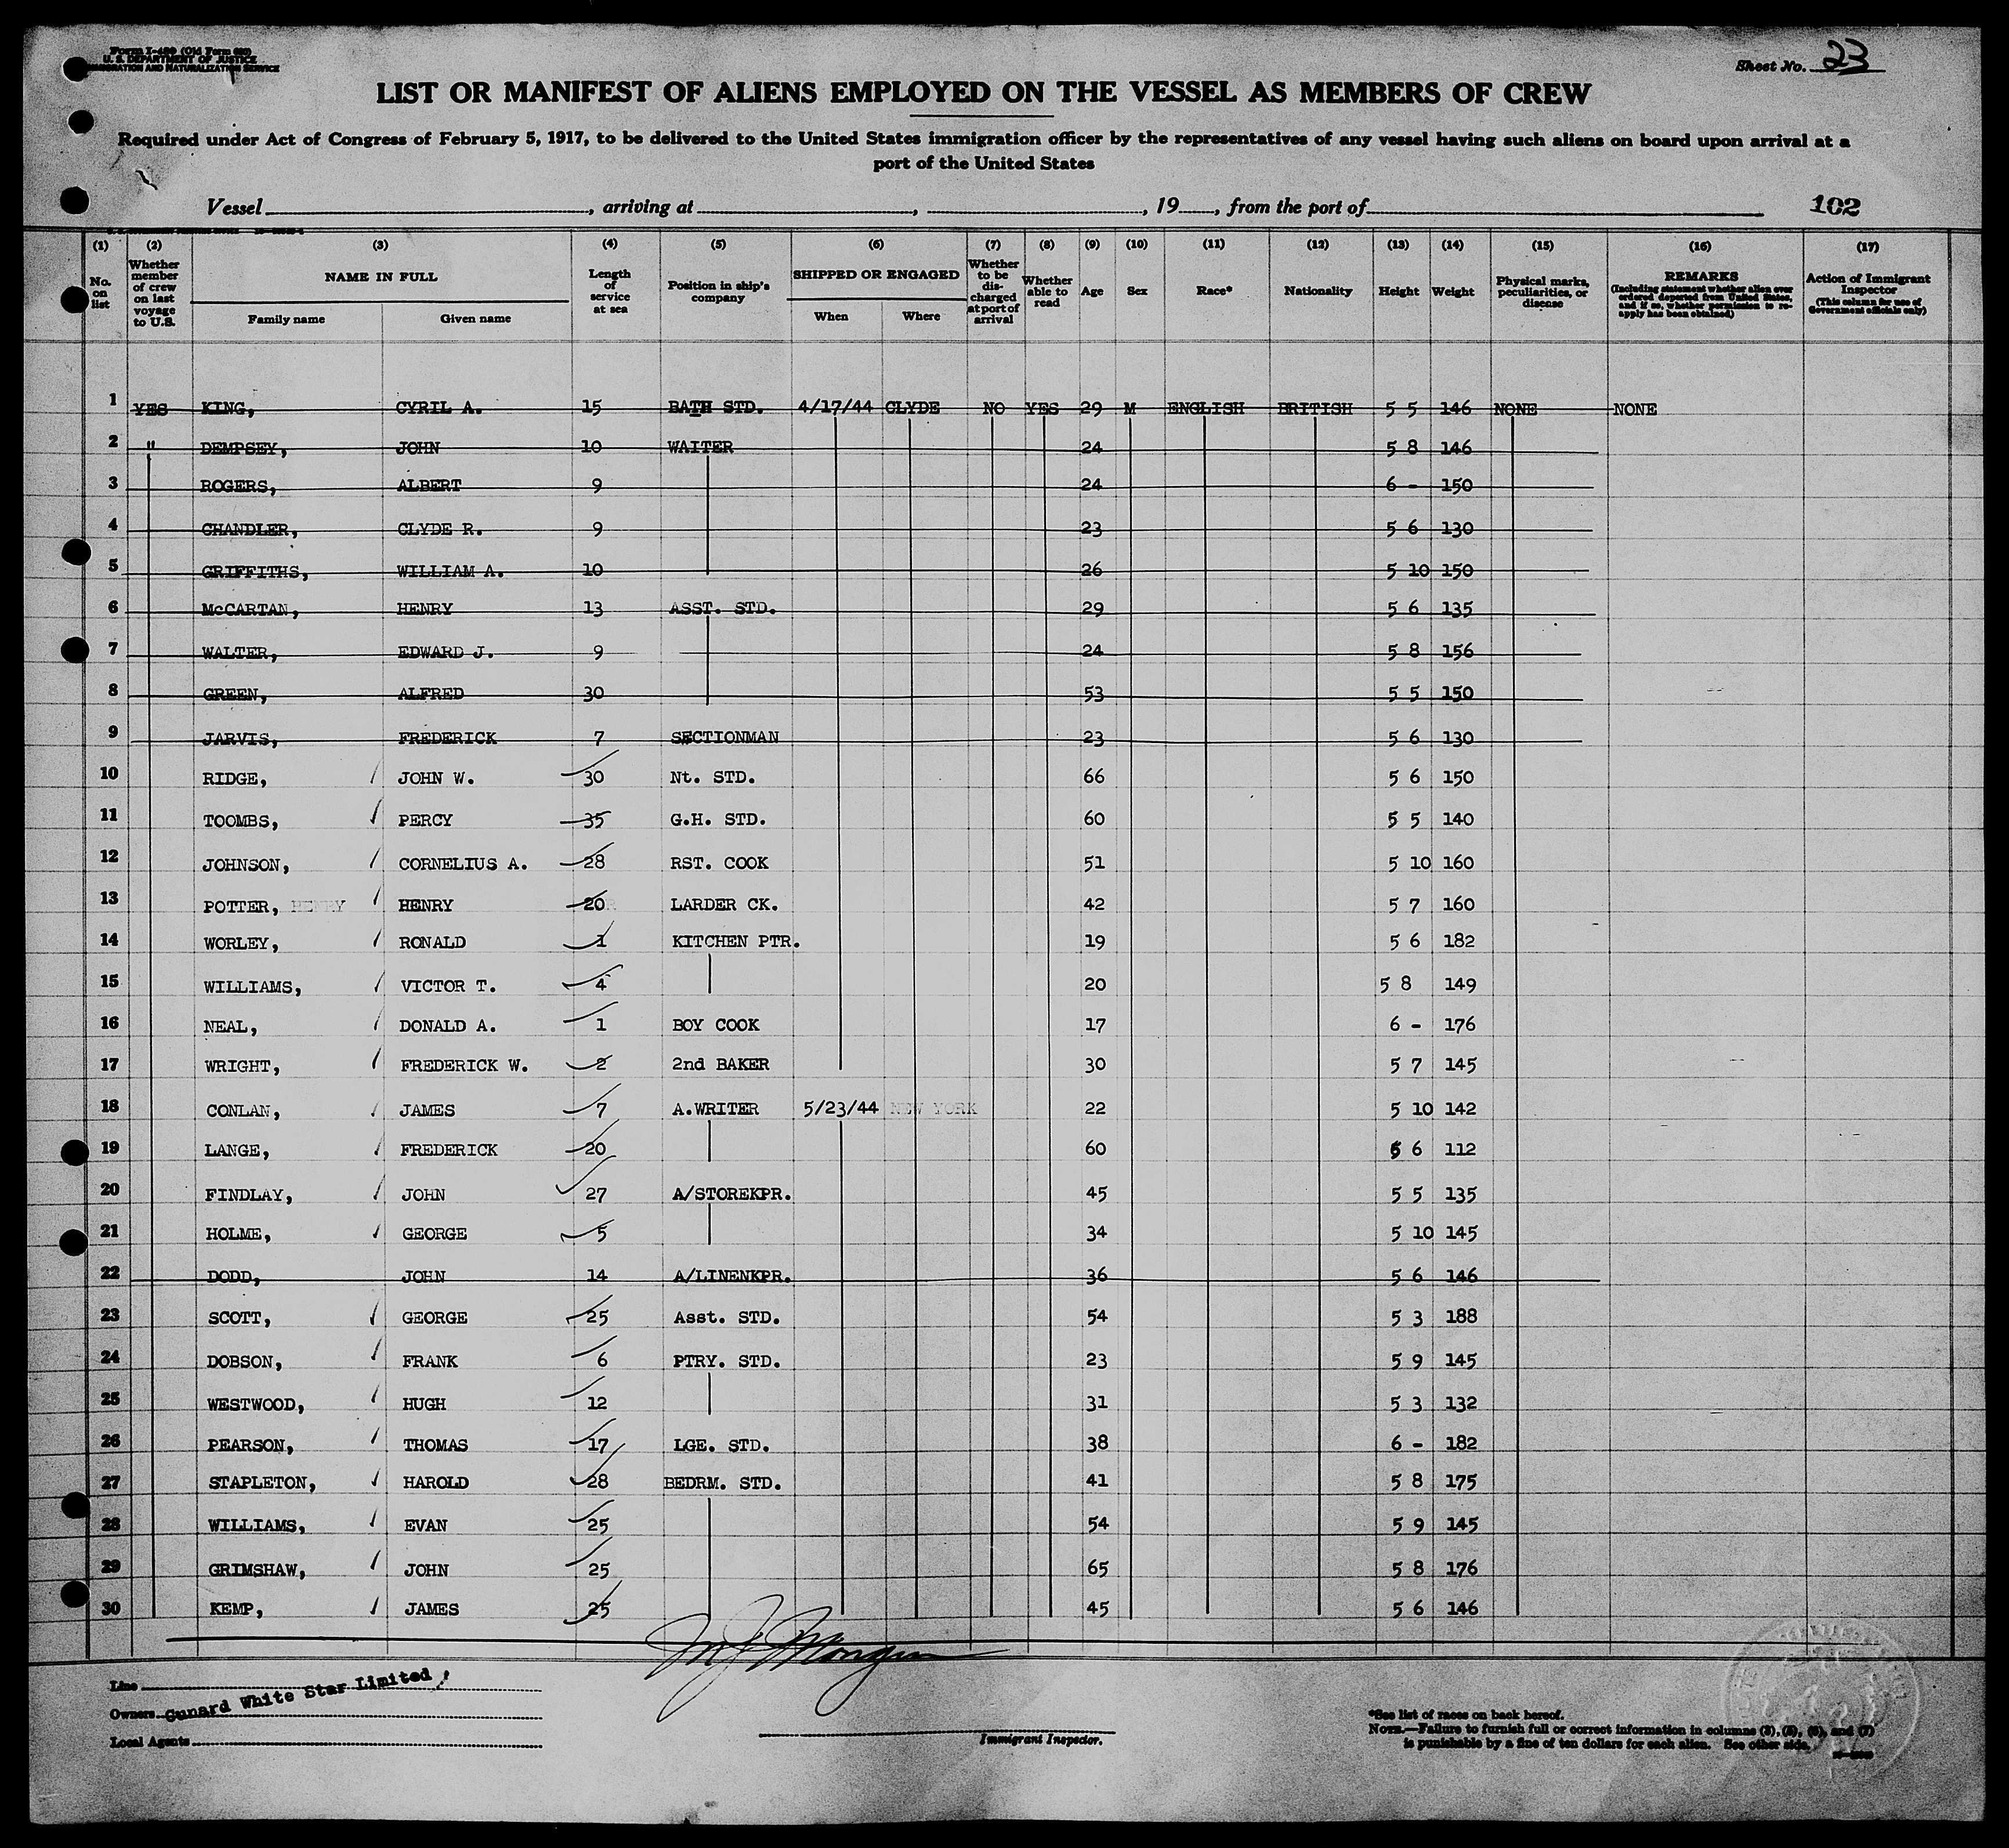 Form I-489 (Old Form 680)
U. S. DEPARTMENT OF JUSTICE
IMMIGRATION AND NATURALIZATION SERVICE
Sheet No. 23
LIST OR MANIFEST OF ALIENS EMPLOYED ON THE VESSEL AS MEMBERS OF CREW
Required under Act of Congress of February 5, 1917, to be delivered to the United States immigration officer by the representatives of any vessel having such aliens on board upon arrival at a
port of the United States
Vessel , arriving at , , 19 , from the port of 102
(1) (2) (3) (4) (5) (6) (7) (8) (9) (10) (11) (12) (13) (14) (15) (16) (17)
No. on list
Whether member of crew on last voyage to U.S.
NAME IN FULL
Family name Given name
Length of service at sea
Position in ship's company
SHIPPED OR ENGAGED
When Where
Whether to be discharged at port of arrival
Whether able to read
Age
Sex
Race*
Nationality
Height
Weight
Physical marks, peculiarities, or disease
REMARKS
(Including statement whether alien ever ordered deported from United States, and if so, whether permission to re-apply has been obtained)
Action of Immigrant Inspector
(This column for use of Government officials only)
1 YES KING, CYRIL A. 15 BATH STD. 4/17/44 CLYDE NO YES 29 M ENGLISH BRITISH 5 5 146 NONE NONE
2 " DEMPSEY, JOHN 10 WAITER 24 5 8 146
3 ROGERS, ALBERT 9 24 6 - 150
4 CHANDLER, CLYDE R. 9 23 5 6 130
5 GRIFFITHS, WILLIAM A. 10 26 5 10 150
6 McCARTAN, HENRY 13 ASST. STD. 29 5 6 135
7 WALTER, EDWARD J. 9 24 5 8 156
8 GREEN, ALFRED 30 53 5 5 150
9 JARVIS, FREDERICK 7 SECTIONMAN 23 5 6 130
10 RIDGE, JOHN W. 30 Nt. STD. 66 5 6 150
11 TOOMBS, PERCY 35 G.H. STD. 60 5 5 140
12 JOHNSON, CORNELIUS A. 28 RST. COOK 51 5 10 160
13 POTTER, HENRY HENRY 20 LARDER CK. 42 5 7 160
14 WORLEY, RONALD 1 KITCHEN PTR. 19 5 6 182
15 WILLIAMS, VICTOR T. 4 20 5 8 149
16 NEAL, DONALD A. 1 BOY COOK 17 6 - 176
17 WRIGHT, FREDERICK W. 2 2nd BAKER 30 5 7 145
18 CONLAN, JAMES 7 A.WRITER 5/23/44 NEW YORK 22 5 10 142
19 LANGE, FREDERICK 20 60 5 6 112
20 FINDLAY, JOHN 27 A/STOREKPR. 45 5 5 135
21 HOLME, GEORGE 5 34 5 10 145
22 DODD, JOHN 14 A/LINENKPR. 36 5 6 146
23 SCOTT, GEORGE 25 Asst. STD. 54 5 3 188
24 DOBSON, FRANK 6 PTRY. STD. 23 5 9 145
25 WESTWOOD, HUGH 12 31 5 3 132
26 PEARSON, THOMAS 17 LGE. STD. 38 6 - 182
27 STAPLETON, HAROLD 28 BEDRM. STD. 41 5 8 175
28 WILLIAMS, EVAN 25 54 5 9 145
29 GRIMSHAW, JOHN 25 65 5 8 176
30 KEMP, JAMES 25 45 5 6 146
Line
Owners Cunard White Star Limited
Local Agents
Immigrant Inspector.
*See list of races on back hereof.
NOTE.—Failure to furnish full or correct information in columns (3), (5), (6), and (7)
is punishable by a fine of ten dollars for each alien. See other side.